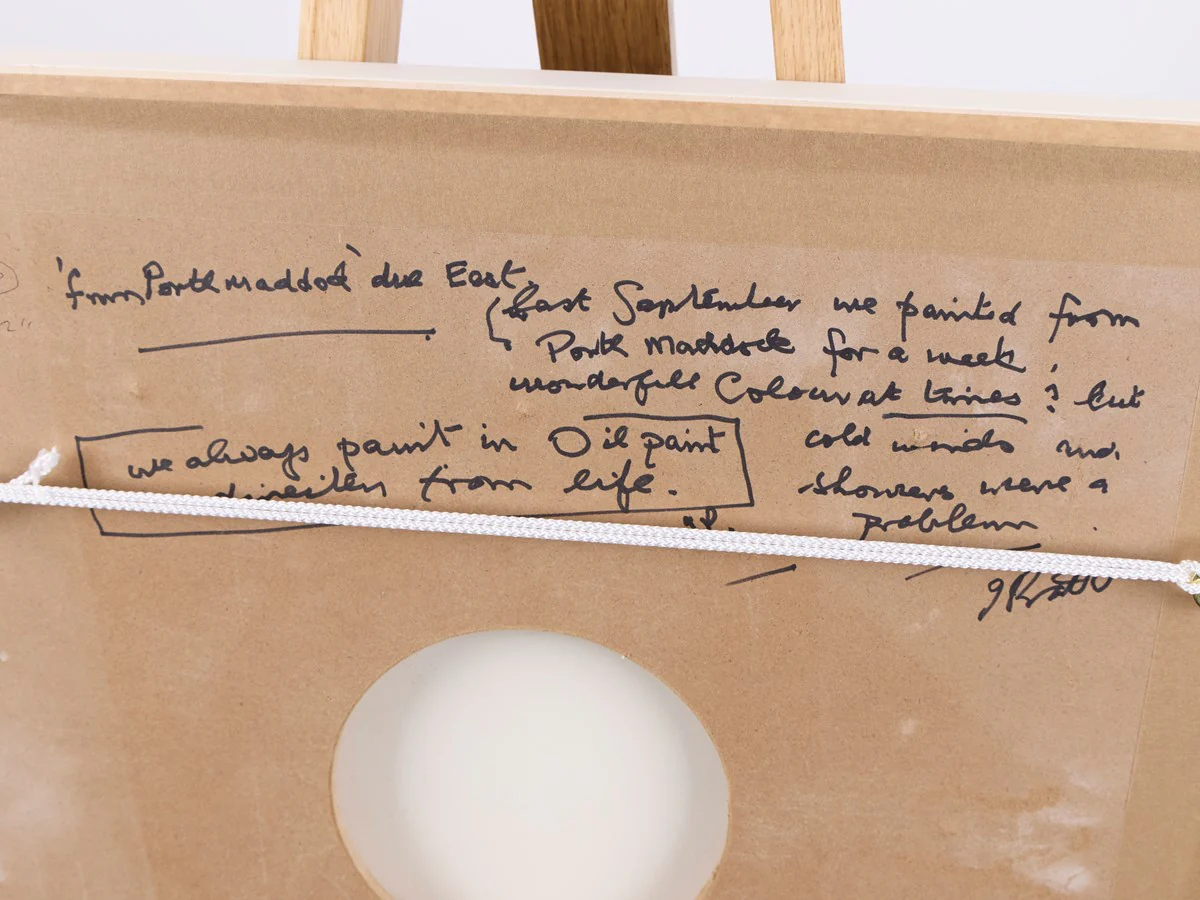 'from Porthmaddock' due East.
Last September we painted from
Porth Maddock for a week
wonderfull Colour at times ? but
cold winds and
showers were a
problem
we always paint in Oil paint
directly from life.